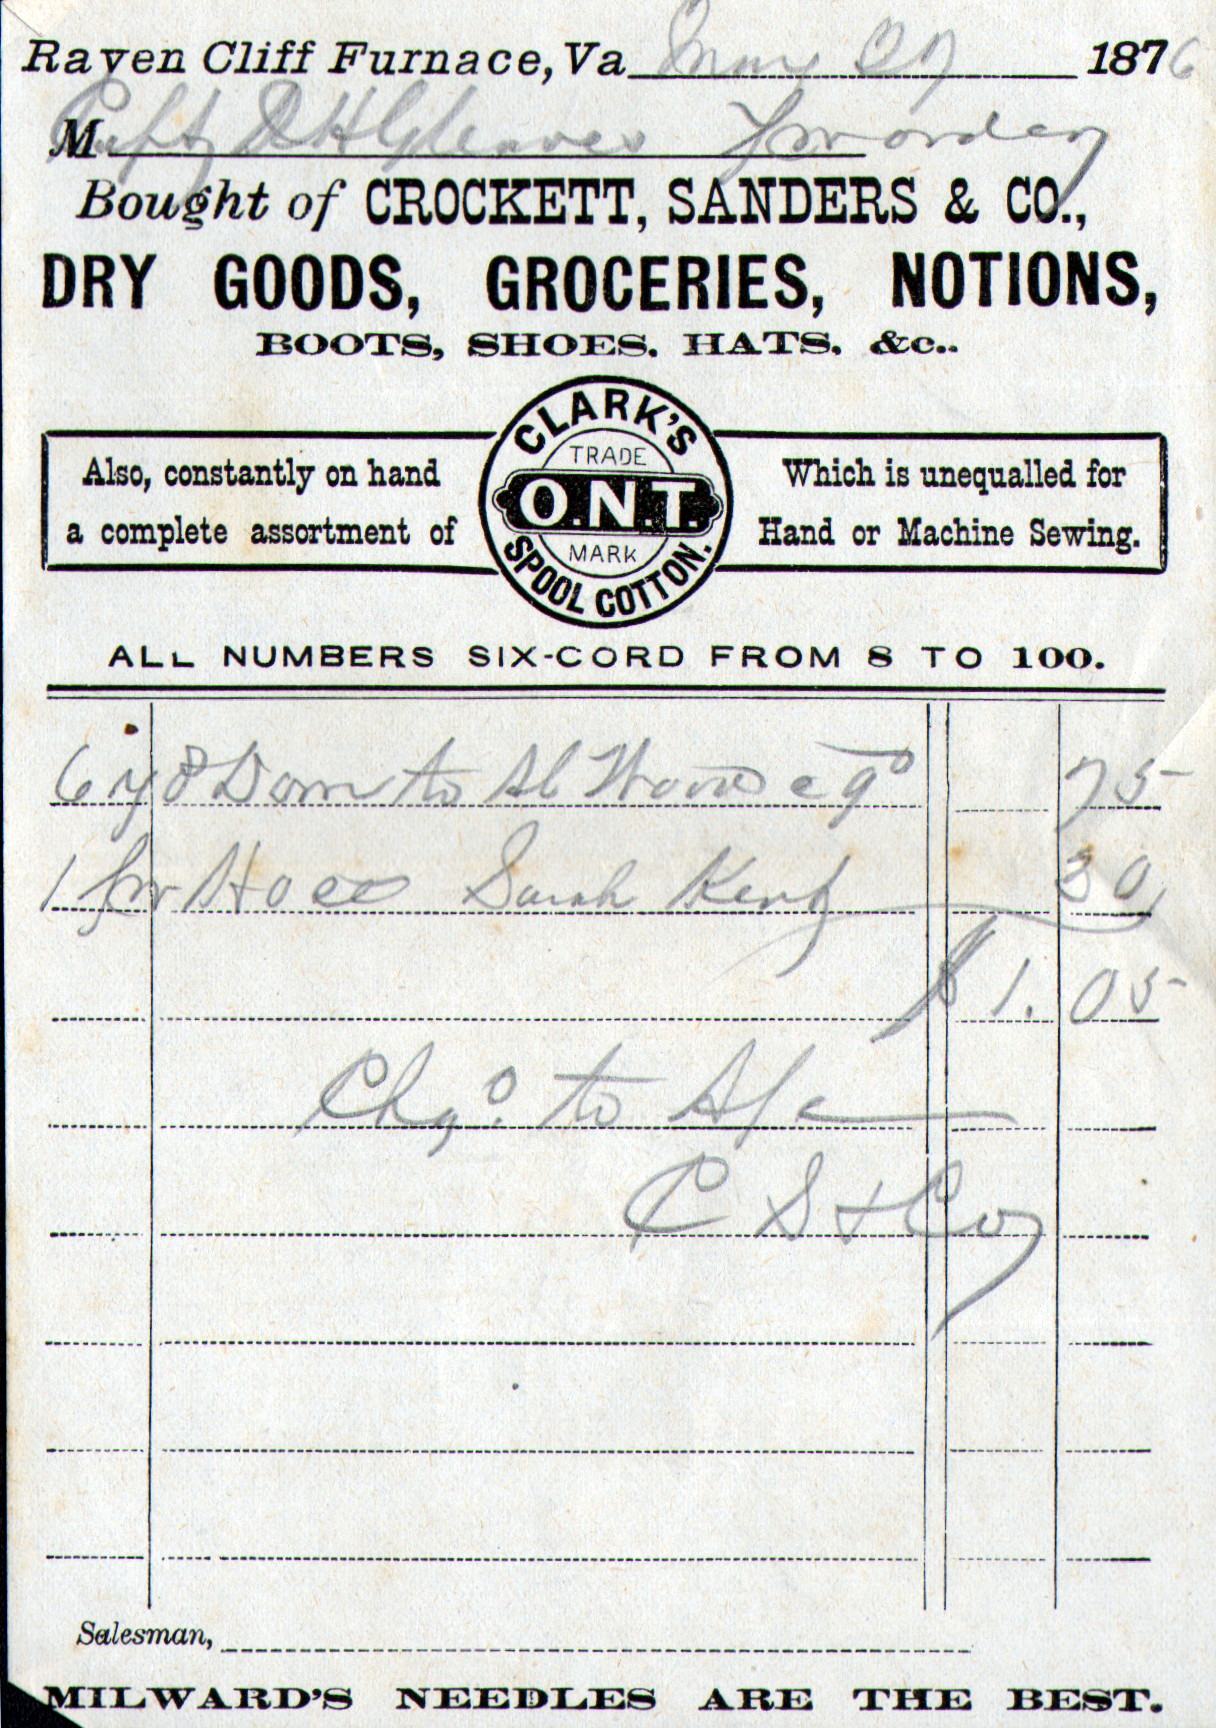 Raven Cliff Furnace, Va 1876
M Capt D H Gleaves Pr order
Bought of CROCKETT, SANDERS & CO.,
DRY GOODS, GROCERIES, NOTIONS,
BOOTS, SHOES. HATS. &c..
Also, constantly on hand
a complete assortment of
CLARK'S
TRADE
O.N.T.
MARK
SPOOL COTTON.
Which is unequalled for
Hand or Machine Sewing.
ALL NUMBERS SIX-CORD FROM 8 TO 100.
6 yds Dom to Al 75
1 pr Hose Sarah 30
$1.05
Chgd. to A/c
C S & Co
Salesman,
MILWARD'S NEEDLES ARE THE BEST.